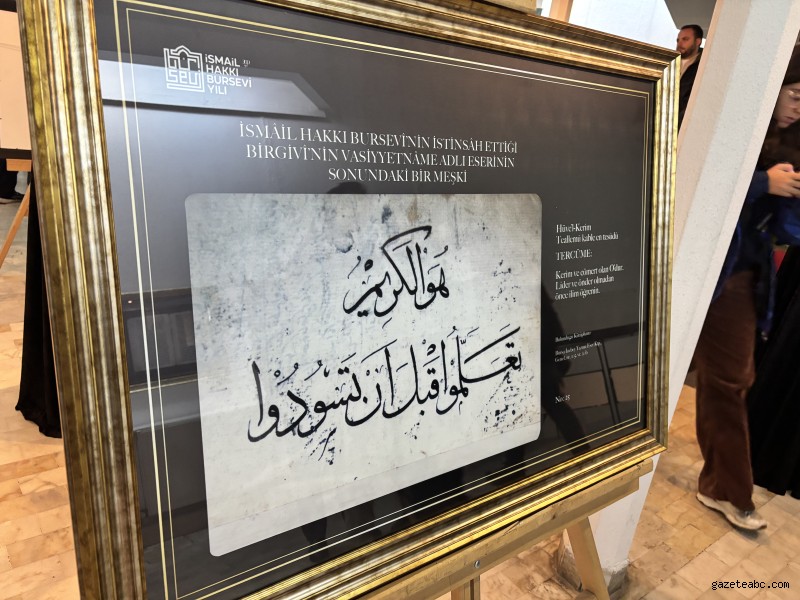 İSMAİL
HAKKI
BURSEVİ
YILI
İSMÂİL HAKKI BURSEVİ'NİN İSTİNSÂH ETTİĞİ
BİRGİVİ'NİN VASİYYETNÂME ADLI ESERİNİN
SONUNDAKİ BİR MEŞKİ
هُوَ الْكَرِيمُ
تَعَلَّمُوا قَبْلَ اَنْ تَسُودُوا
Hüve'l-Kerim
Teallemû kable en tesûdû
TERCÜME:
Kerim ve cömert olan O'dur.
Lider ve önder olmadan
önce ilim öğrenin.
Bulunduğu Kütüphane
No: 25
gazeteabc.com